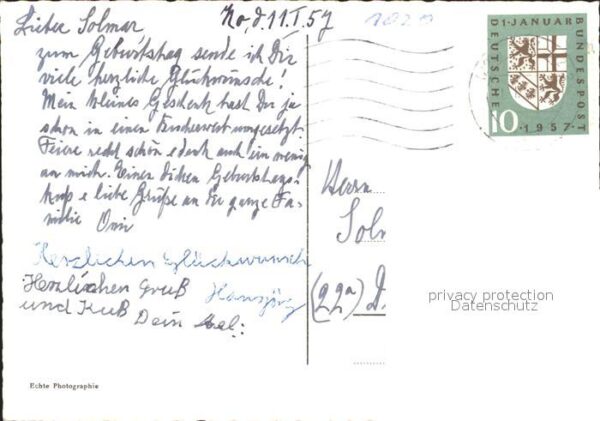 Ko, d. 11.I.57
Lieber Solmar
zum Geburtstag sende ich Dir
viele herzliche Glückwünsche!
Mein kleines Geschenk hast Du ja
schon in einen umgesetzt.
Feiere recht schön & denk auch ein wenig
an mich. Einen dicken Geburtstags-
kuß & liebe Grüße an die ganze Fa-
milie Omi
Herzlichen Glückwunsch
Hansjörg
Herzlichen Gruß
und Kuß
Dein
Echte Photographie
1. JANUAR
DEUTSCHE
BUNDESPOST
10
1957
Herrn
Solm
(22a) D.
privacy protection
Datenschutz